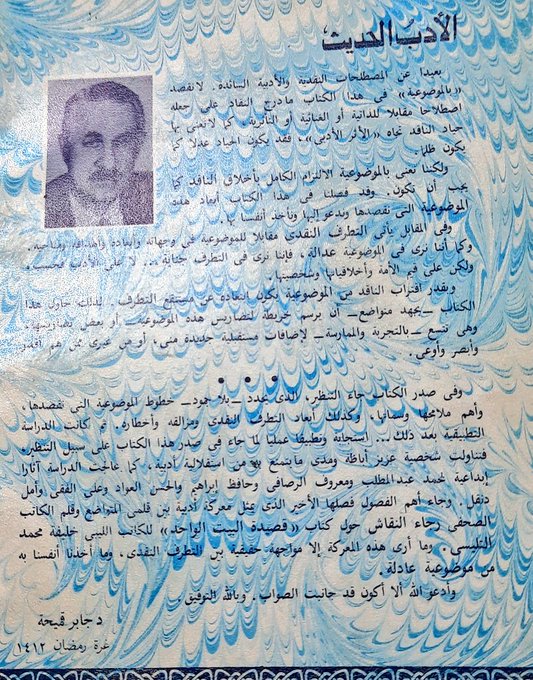 الأدب الحديث،
بعيدا عن المصطلحات النقدية والأدبية السائدة. لانقصد
«بالموضوعية» فى هذا الكتاب مادرج النقاد على جعله
اصطلاحا مقابلا للذاتية أو الغنائية أو التأثرية. كما لانعنى بها
حياد الناقد تجاه «الأثر الأدبى»، فقد يكون الحياد عدلا كما
يكون ظلما
ولكننا نعنى بالموضوعية الالتزام الكامل بأخلاق الناقد كما
يجب أن تكون. وقد فصلنا فى هذا الكتاب أبعاد هذه
الموضوعية التى نقصدها وندعو إليها ونأخذ أنفسنا بها.
وفى المقابل يأتى التطرف النقدى مقابلا للموضوعية فى وجهاته وأبعاده وأهدافه ومناحيه.
وكما أننا نرى فى الموضوعية عدالة، فإننا نرى فى التطرف جناية... لا على الأدب فحسب،
ولكن على قيم الأمة وأخلاقياتها وشخصيتها.
وبقدر اقتراب الناقد من الموضوعية يكون ابتعاده عن مستنقع التطرف. لذلك حاول هذا
الكتاب —بجهد متواضع— أن يرسم خريطة لتضاريس هذه الموضوعية— أو بعض تضاريسها.
وهى تتسع —بالتجربة والممارسة— لإضافات مستقبلية جديدة منى، أو من غيرى ممن هم أقدر
وأبصر وأوعى.
• • •
وفى صدر الكتاب جاء التنظير، الذى يحدد —بلا جمود— خطوط الموضوعية التى نقصدها،
وأهم ملامحها وسماتها. وكذلك أبعاد التطرف النقدى ومزالقه وأخطاره. ثم كانت الدراسة
التطبيقية بعد ذلك... استجابة وتطبيقا عمليا لما جاء فى صدر هذا الكتاب على سبيل التنظير.
فتناولت شخصية عزيز أباظة ومدى مايتمتع به من استقلالية أدبية. كما عالجت الدراسة آثارا
إبداعية لمحمد عبد المطلب ومعروف الرصافى وحافظ إبراهيم والحسن العواد وعلى الفقى وأمل
دنقل. وجاء أهم الفصول فصلها الأخير الذى يمثل معركة أدبية بين قلمى المتواضع وقلم الكاتب
الصحفى رجاء النقاش حول كتاب «قصيدة البيت الواحد» للكاتب الليبى خليفة محمد
التليسى. وما أرى هذه المعركة إلا مواجهة حقيقية بين التطرف النقدى، وما أخذنا أنفسنا به
من موضوعية عادلة.
وأدعو الله ألا أكون قد جانبت الصواب. وبالله التوفيق.
د جابر قميحة
غرة رمضان ١٤١٢